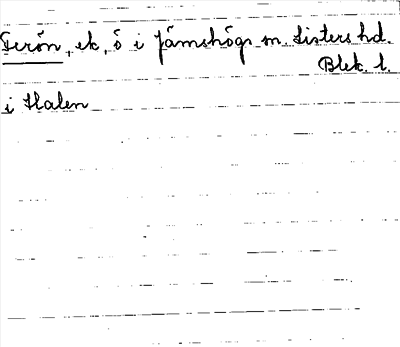 Terön, ek, ö i Jämshögs sn Listers hd.
Blek. l.
i Halen